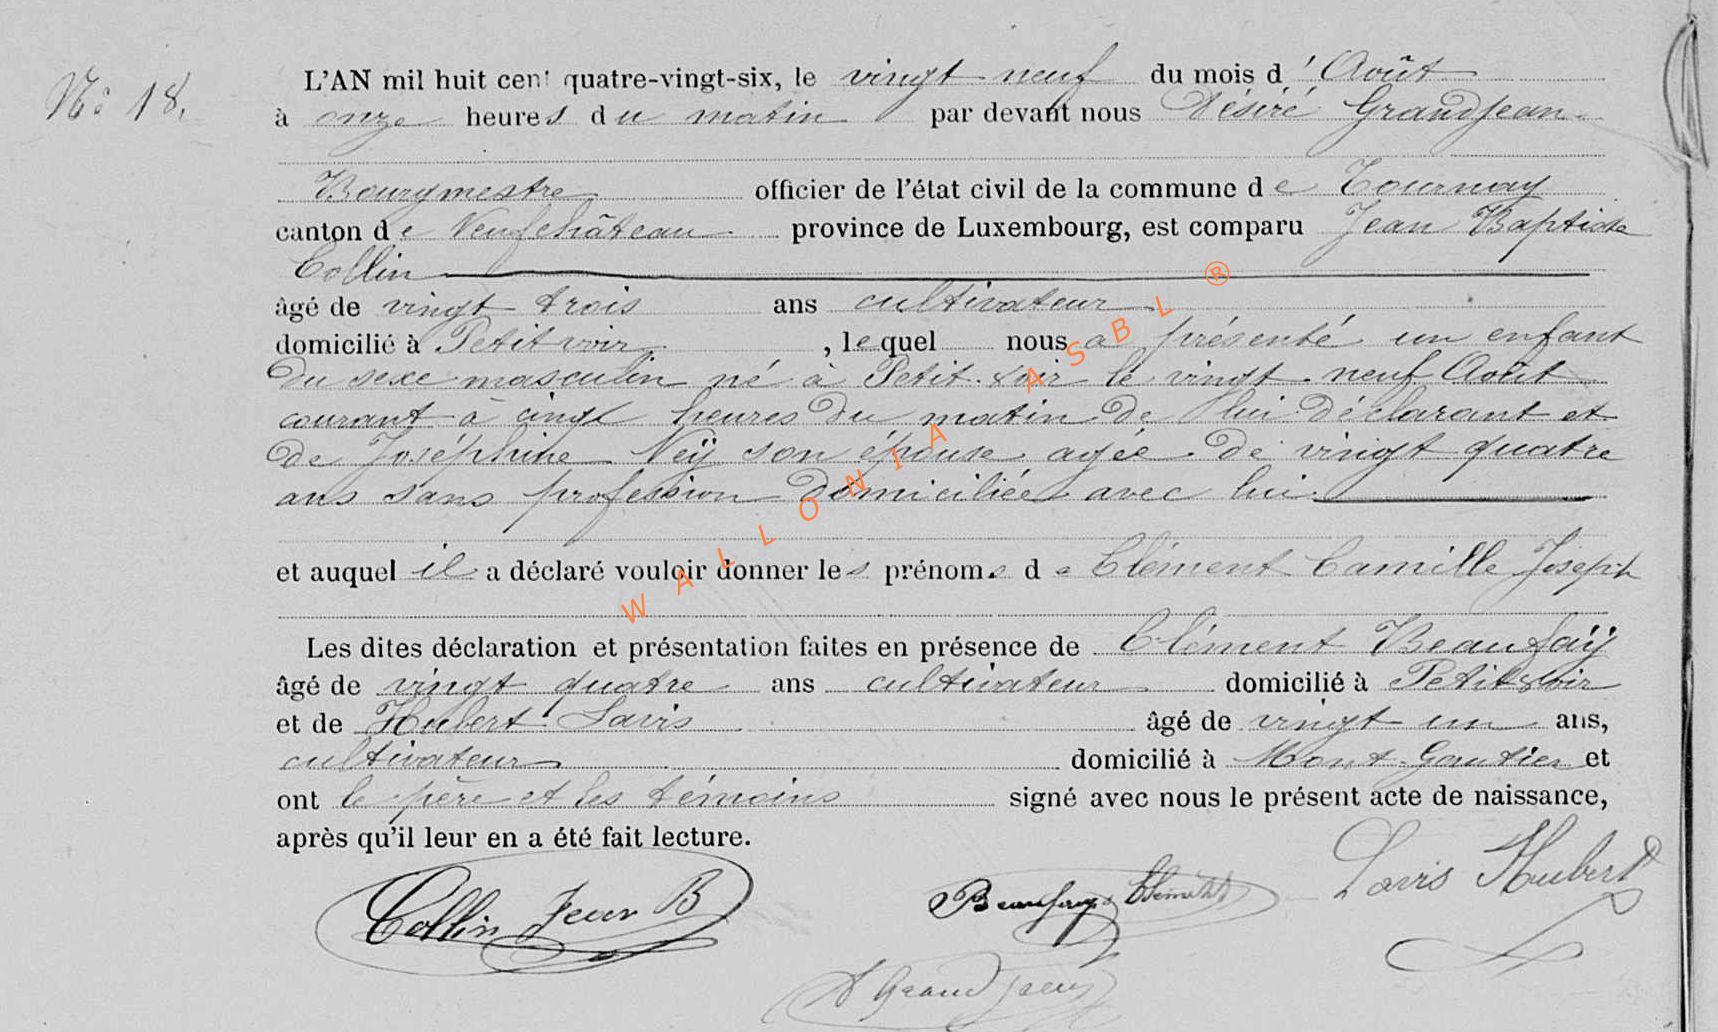 N° 18.
L'AN mil huit cent quatre-vingt-six, le vingt neuf du mois d'Août
à onze heures du matin par devant nous Désiré Grandjean
Bourgmestre officier de l'état civil de la commune de Tournay
canton de Neufchâteau province de Luxembourg, est comparu Jean Baptiste
Collin
âgé de vingt trois ans cultivateur
domicilié à Petitvoir, lequel nous a présenté un enfant
du sexe masculin né à Petit-voir le vingt neuf Août
courant à cinq heures du matin de lui déclarant et
de Joséphine Neÿ son épouse agée de vingt quatre
ans sans profession domiciliée avec lui
et auquel il a déclaré vouloir donner les prénoms de Clément Camille Joseph
Les dites déclaration et présentation faites en présence de Clément Beaufaÿ
âgé de vingt quatre ans cultivateur domicilié à Petitvoir
et de Hubert Lavis âgé de vingt un ans,
cultivateur domicilié à Mont-Gautier et
ont le père et les témoins signé avec nous le présent acte de naissance,
après qu'il leur en a été fait lecture.
Collin Jean B Beaufays Clément Lavis Hubert
D Grandjean
WALLONIA ASBL ®